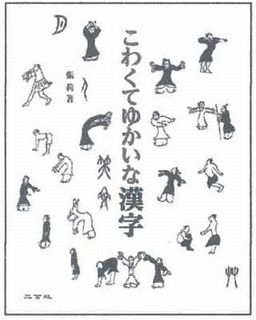 こわくてゆかいな漢字
張莉著